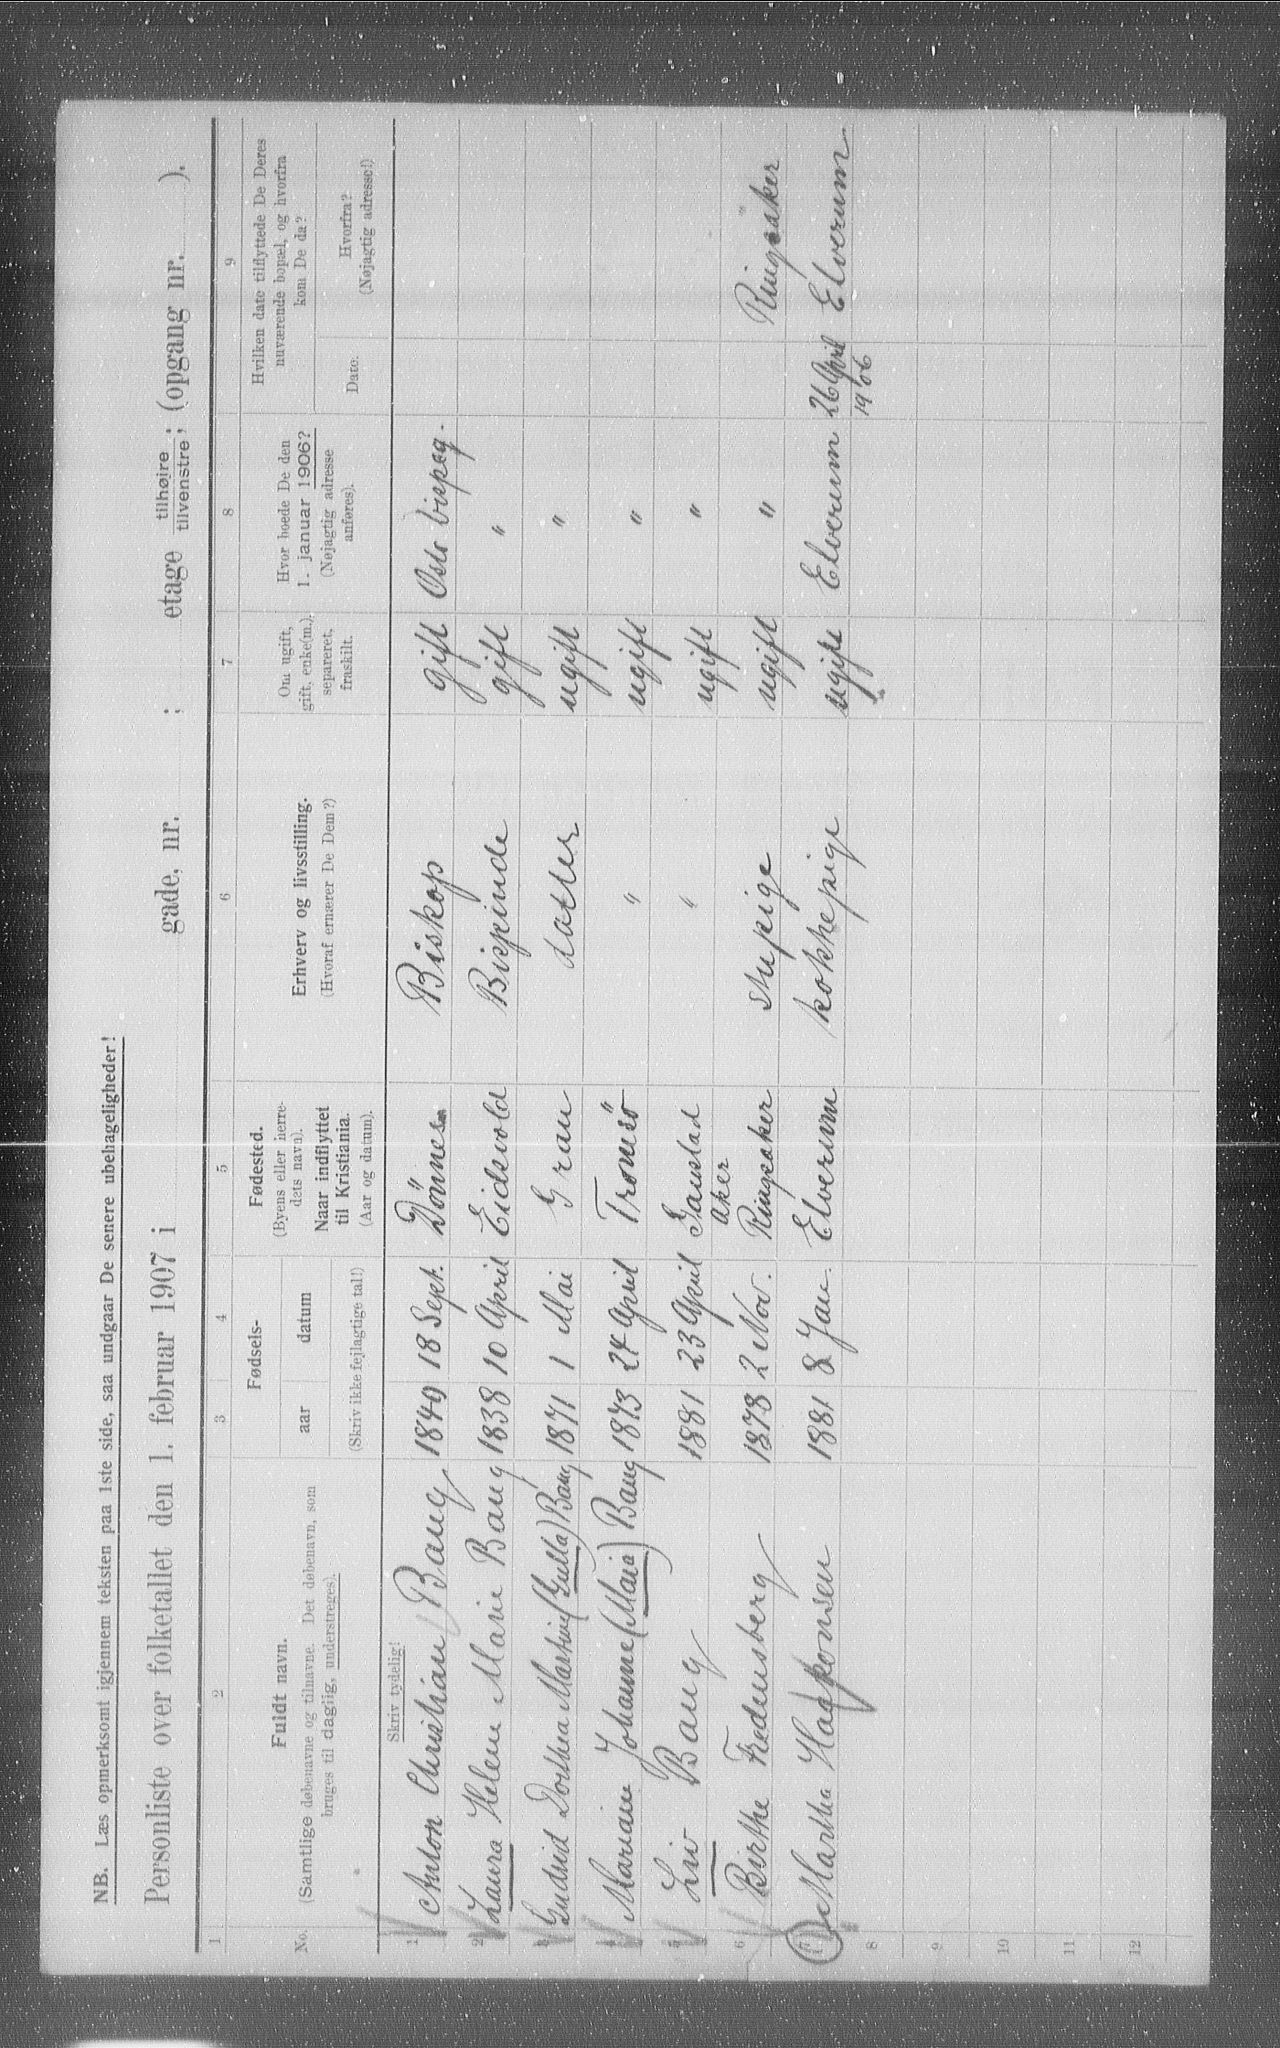 NB. Læs opmerksomt igjennem teksten paa 1ste side, saa undgaar De senere ubehageligheder!
Personliste over folketallet den 1. februar 1907 i gade, nr. ; etage tilhøire tilvenstre; (opgang nr. ).
1 2 3 4 5 6 7 8 9
No. Fuldt navn. (Samtlige døbenavne og tilnavne. Det døbenavn, som bruges til daglig, understreges).
Fødsels- aar datum (Skriv ikke fejlagtige tal!)
Fødested. (Byens eller herredets navn). Naar indflyttet til Kristiania. (Aar og datum).
Erhverv og livsstilling. (Hvoraf ernærer De Dem?)
Om ugift, gift, enke(m.), separeret, fraskilt.
Hvor boede De den 1. januar 1906? (Nøjagtig adresse anføres).
Hvilken dato tilflyttede De Deres nuværende bopæl, og hvorfra kom De da?
Dato. Hvorfra? (Nøjagtig adresse!)
Skriv tydelig!
1 Anton Christian Bang 1840 18 Sept. Dönnes Biskop gift Oslo bispeg.
2 Laura Helene Marie Bang 1838 10 April Eidsvold Bispinde gift "
3 Gudrid Dorthea Martine (Gulla) Bang 1871 1 Mai Gran datter ugift "
4 Mariane Johanne (Maia) Bang 1873 24 April Tromsö " ugift "
5 Liv Bang 1881 23 April Gaustad Aker " ugift "
6 Birthe Fredensberg 1878 2 Nov. Ringsaker stupige ugift " Ringsaker
7 Martha Haakonsen 1881 8 Jan. Elverum kokkepige ugift Elverum 26 April 1906 Elverum
8
9
10
11
12